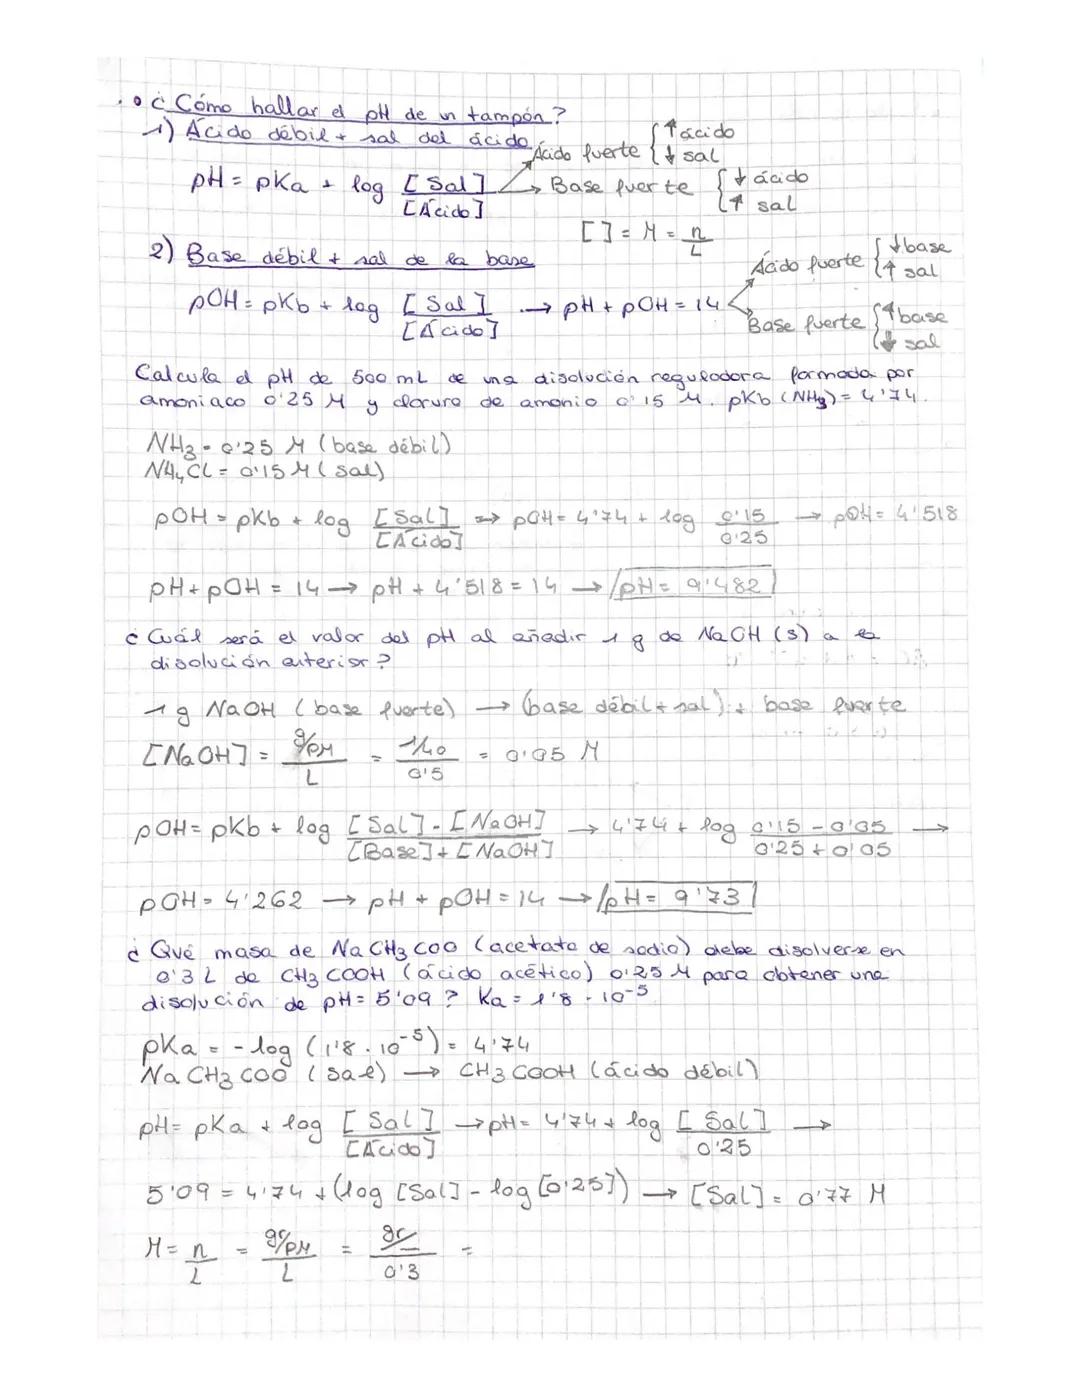 ¿Cómo hallar el pH de un tampón?
1) Ácido débil + sal del ácido
Ácido fuerte { ↑ ácido ↓ sal
pH = pKa + log [Sal]/[Ácido] → Base fuerte { ↓ ácido ↑ sal
[ ] = M = n/L
2) Base débil + sal de la base
Ácido fuerte { ↓ base ↑ sal
pOH = pKb + log [Sal]/[Ácido] → pH + pOH = 14
Base fuerte { ↑ base ↓ sal
Calcula el pH de 500 mL de una disolución reguladora formada por
amoniaco 0'25 M y cloruro de amonio 0'15 M. pKb (NH3) = 4'74.
NH3 = 0'25 M (base débil)
NH4Cl = 0'15 M (sal)
pOH = pKb + log [Sal]/[Ácido] → pOH = 4'74 + log 0'15/0'25 → pOH = 4'518
pH + pOH = 14 → pH + 4'518 = 14 → pH = 9'482
¿Cuál será el valor del pH al añadir 1 g de NaOH (s) a la
disolución anterior?
1 g NaOH (base fuerte) → (base débil + sal) + base fuerte
[NaOH] = g/PM/L = 1/40/0'5 = 0'05 M
pOH = pKb + log [Sal] - [NaOH]/[Base] + [NaOH] → 4'74 + log 0'15 - 0'05/0'25 + 0'05 →
pOH = 4'262 → pH + pOH = 14 → pH = 9'73
¿Qué masa de NaCH3COO (acetato de sodio) debe disolverse en
0'3 L de CH3COOH (ácido acético) 0'25 M para obtener una
disolución de pH = 5'09? Ka = 1'8 · 10⁻⁵
pKa = - log (1'8 · 10⁻⁵) = 4'74
NaCH3COO (sal) → CH3COOH (ácido débil)
pH = pKa + log [Sal]/[Ácido] → pH = 4'74 + log [Sal]/0'25 →
5'09 = 4'74 + (log [Sal] - log [0'25]) → [Sal] = 0'77 M
M = n/L = gr/PM/L = gr/0'3 =